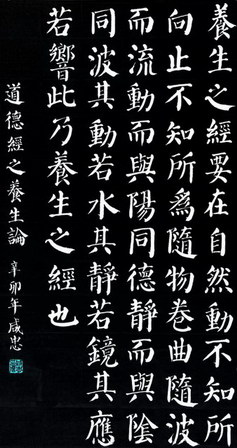 養生之經要在自然動不知所
向止不知所爲隨物卷曲隨波
而流動而與陽同德靜而與陰
同波其動若水其靜若鏡其應
若響此乃養生之經也
道德經之養生論 辛卯年 成忠